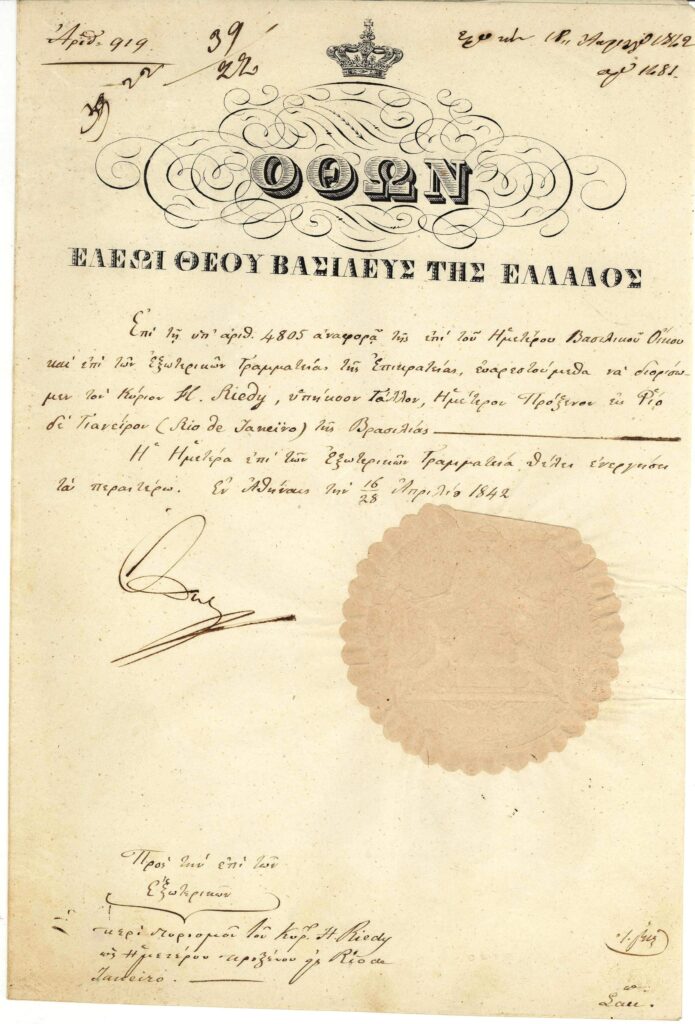 Ἀριθ. 919
39
22
ἐλήφθη 18 Ἀπριλ 1842
ἀρ 1481.
39 22
ΟΘΩΝ
ΕΛΕΩΙ ΘΕΟΥ ΒΑΣΙΛΕΥΣ ΤΗΣ ΕΛΛΑΔΟΣ
Ἐπὶ τῇ ὑπ' ἀριθ. 4805 ἀναφορᾷ τῆς ἐπὶ τοῦ Ἡμετέρου Βασιλικοῦ Οἴκου
καὶ ἐπὶ τῶν Ἐξωτερικῶν Γραμματείας τῆς Ἐπικρατείας, εὐαρεστούμεθα νὰ διορίσω-
μεν τὸν Κύριον H. Riedy, ὑπήκοον Γάλλον, Ἡμέτερον Πρόξενον εἰς Ῥίο
δὲ Ἰανείρον (Rio de Janeiro) τῆς Βρασιλίας
Ἡ Ἡμετέρα ἐπὶ τῶν Ἐξωτερικῶν Γραμματεία θέλει ἐνεργήσει
τὰ περαιτέρω. Ἐν Ἀθήναις τὴν 16/28 Ἀπριλίου 1842
Πρὸς τὴν ἐπὶ τῶν
Ἐξωτερικῶν
περὶ διορισμοῦ τοῦ Κυρ. H Riedy
ὡς Ἡμετέρου προξένου εἰς Rio de
Janeiro.